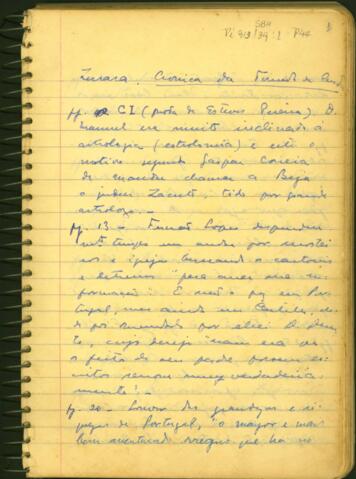 SBH
Pi 413/39 : 1 P44
1
Zurara, Cronica da Tomada de Ceuta
pp. CI (prefa de Esteves Pereira) D.
Manuel era muito inclinado à
astrologia (estrolomia) e este o
motivo segundo Gaspar Correia
de mandar chamar a Beja
o judeu Zacuto, tido por grande
astrologo. —
pp. 13 — Fernão Lopes despendeu
muito tempo em andar por mostei-
ros e igrejas buscando os cartorios
e letreiros "pera auer sua in-
formação". E não só em Por-
tugal, mas ainda em Castela,
foi mandado por elrei D. Duar-
te, cujo desejo "nam era que
o feito de seu padre fossem es-
critos senom muy verdadeira-
mente". —
p. 20 — Louvor das grandezas e ri-
quezas de Portugal, "o mayor e mais
bem aventurado rregno que ha no